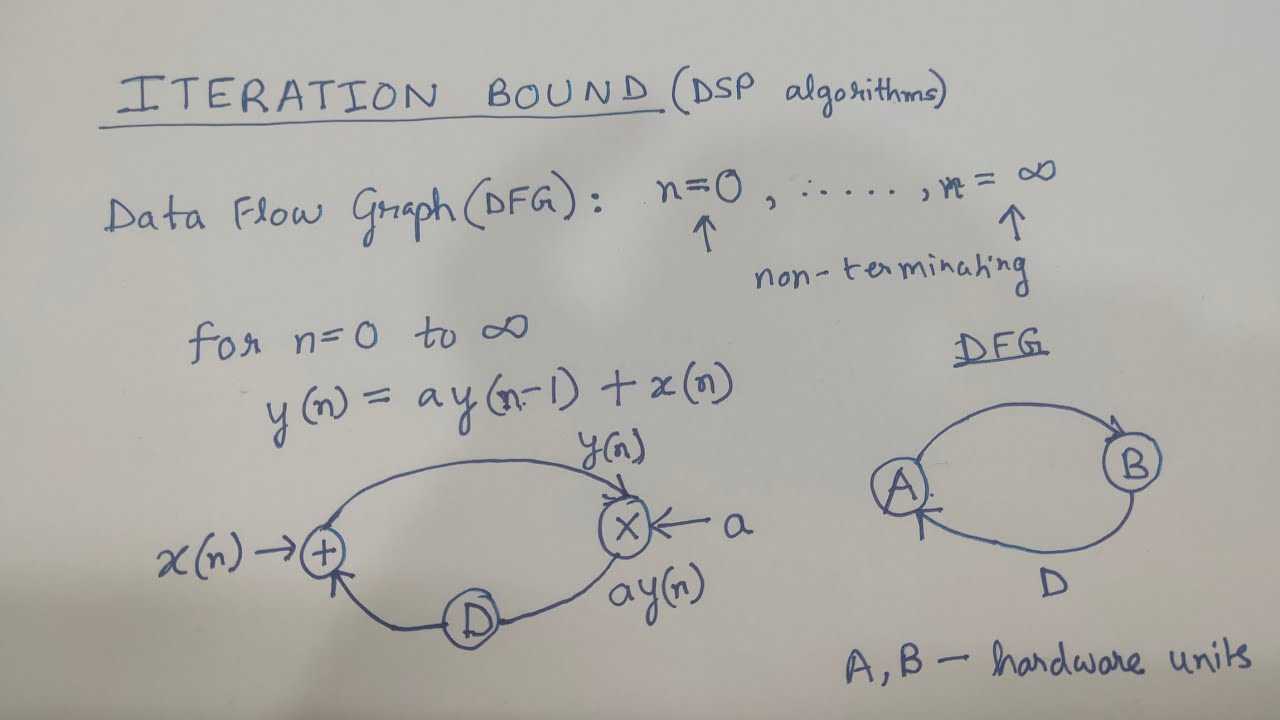 ITERATION BOUND (DSP algorithms)
Data Flow Graph (DFG): n=0, ......, n = ∞
↑ ↑
non-terminating
for n=0 to ∞
y(n) = ay(n-1) + x(n)
DFG
y(n)
A B
x(n) → + X ← a
ay(n)
D
D
A, B - hardware units